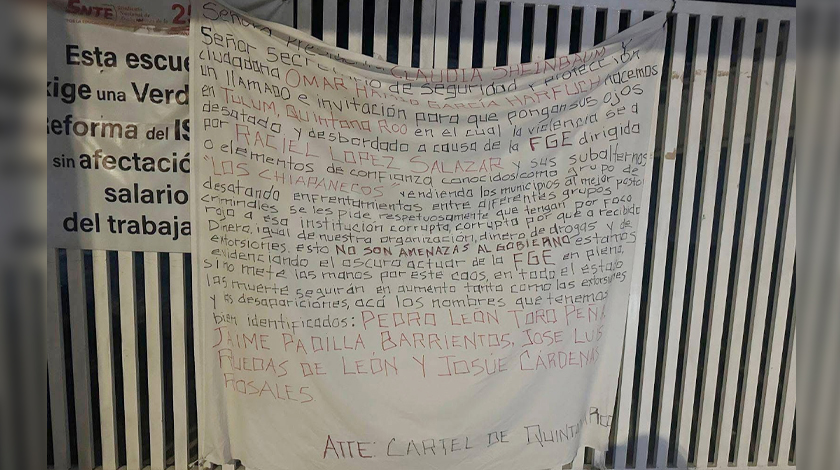 SNTE
25
Esta escue
xige una Verd
eforma del IS
sin afectació
salario
del trabaja
Señora Pre
CLAUDIA SHEINBAUM y
Señor Secre de Seguridad y Protección
ciudadana OMAR HA GARCÍA HARFUCH hacemos
un llamado e invitación para que pongan sus ojos
en TULUM, QUINTANA ROO en el cual la violencia se a
desatado y desbordado a causa de la FGE dirigida
por RACIEL LOPEZ SALAZAR y sus subalternos
o elementos de confianza conocidos como grupo de
"LOS CHIAPANECOS" vendiendo los municipios al mejor postor
desatando enfrentamientos entre diferentes grupos
criminales se les pide respetuosamente que tengan por foco
rojo a esa institución corrupta, corrupta por que a recibido
Dinero, igual de nuestra organización, dinero de drogas y de
extorsiones, esto NO SON AMENAZAS AL GOBIERNO estamos
evidenciando el oscuro actuar de la FGE en pleno,
si no mete las manos por este caos, en todo el estado
las muerte seguirán en aumento tanto como las extorsiones
y las desapariciones, acá los nombres que tenemos
bien identificados: PEDRO LEÓN TORO PEÑA
JAIME PADILLA BARRIENTOS, JOSE LUIS
RUEDAS DE LEÓN Y JOSUÉ CÁRDENAS
ROSALES
ATTE: CARTEL DE QUINTANA ROO